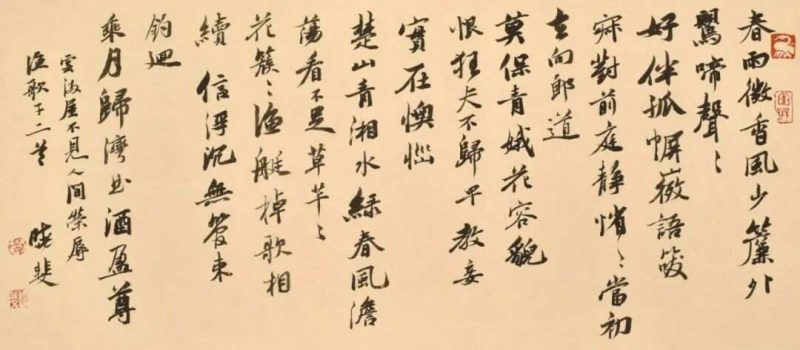 春雨微香風少簾外
鶯啼聲〻
好伴孤幈微語笑
寂對前庭靜悄〻當初
去向郎道
莫保青娥花容貌
恨狂夫不歸早教妾
實在懊惱
楚山青湘水綠春風澹
蕩看不足草芊〻
花簇〻漁艇棹歌相
續信浮沉無管束
釣迴
乘月歸灣曲酒盈尊
雲滿屋不見人間榮辱
漁歌子二首
曉斐